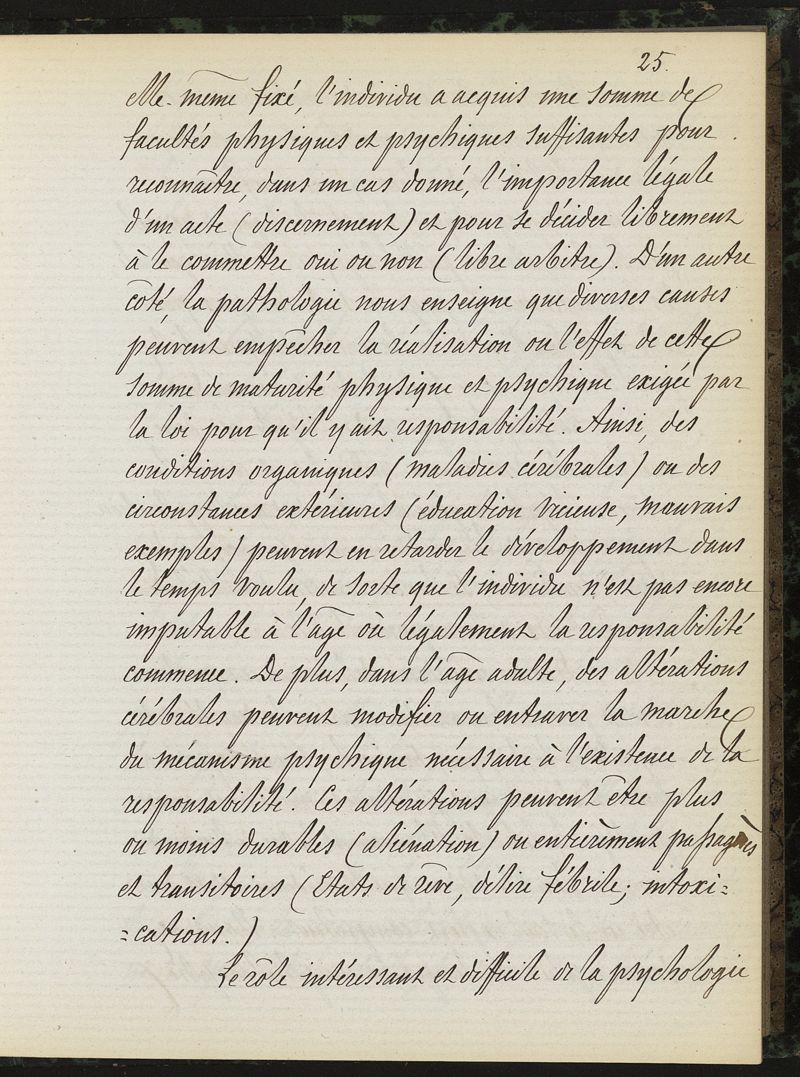 25.
elle-même fixé, l'individu a acquis une somme de
facultés physiques et psychiques suffisantes pour
reconnaître, dans un cas donné, l'importance légale
d'un acte (discernement) et pour se décider librement
à le commettre oui ou non (libre arbitre). D'un autre
côté, la pathologie nous enseigne que diverses causes
peuvent empêcher la réalisation ou l'effet de cette
somme de maturité physique et psychique exigée par
la loi pour qu'il y ait responsabilité. Ainsi, des
conditions organiques (maladies cérébrales) ou des
circonstances extérieures (éducation vicieuse, mauvais
exemples) peuvent en retarder le développement dans
le temps voulu, de sorte que l'individu n'est pas encore
imputable à l'âge où légalement la responsabilité
commence. De plus, dans l'âge adulte, des altérations
cérébrales peuvent modifier ou entraver la marche
du mécanisme psychique nécessaire à l'existence de la
responsabilité. Ces altérations peuvent être plus
ou moins durables (aliénation) ou entièrement passagères
et transitoires (Etats de rêve, délire fébrile; intoxi=
=cations.)
Le rôle intéressant et difficile de la psychologie